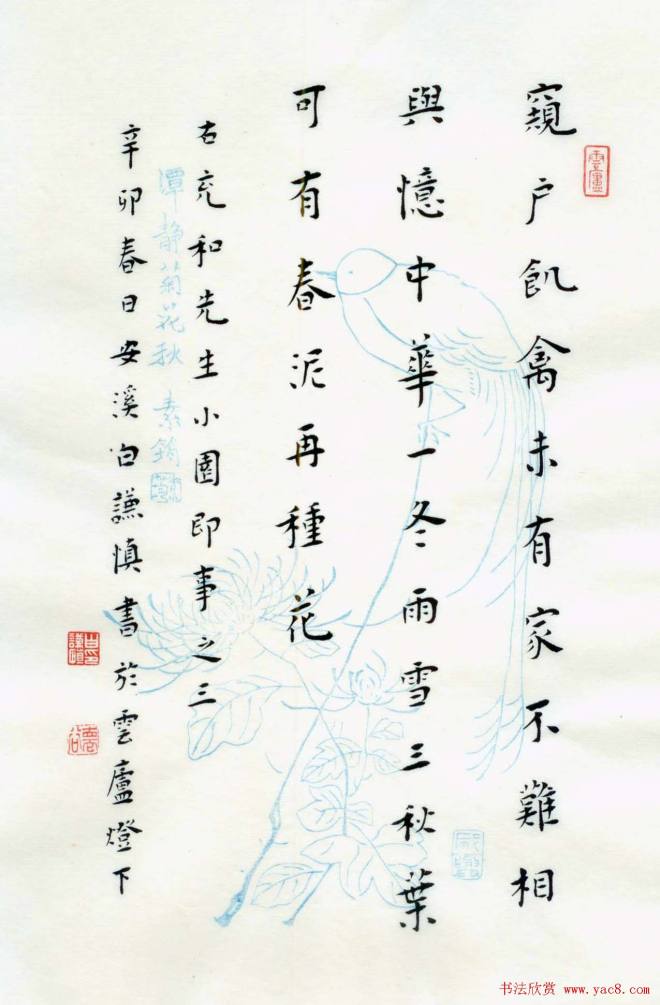 窺户飢禽未有家不難相
與憶中華一冬雨雪三秋葉
可有春泥再種花
右充和先生小園即事之三
辛卯春日安溪白謙慎書於雲廬燈下
潭静菊花秋 素鞠
雲廬
白謙慎印
書法欣赏 www.yac8.com